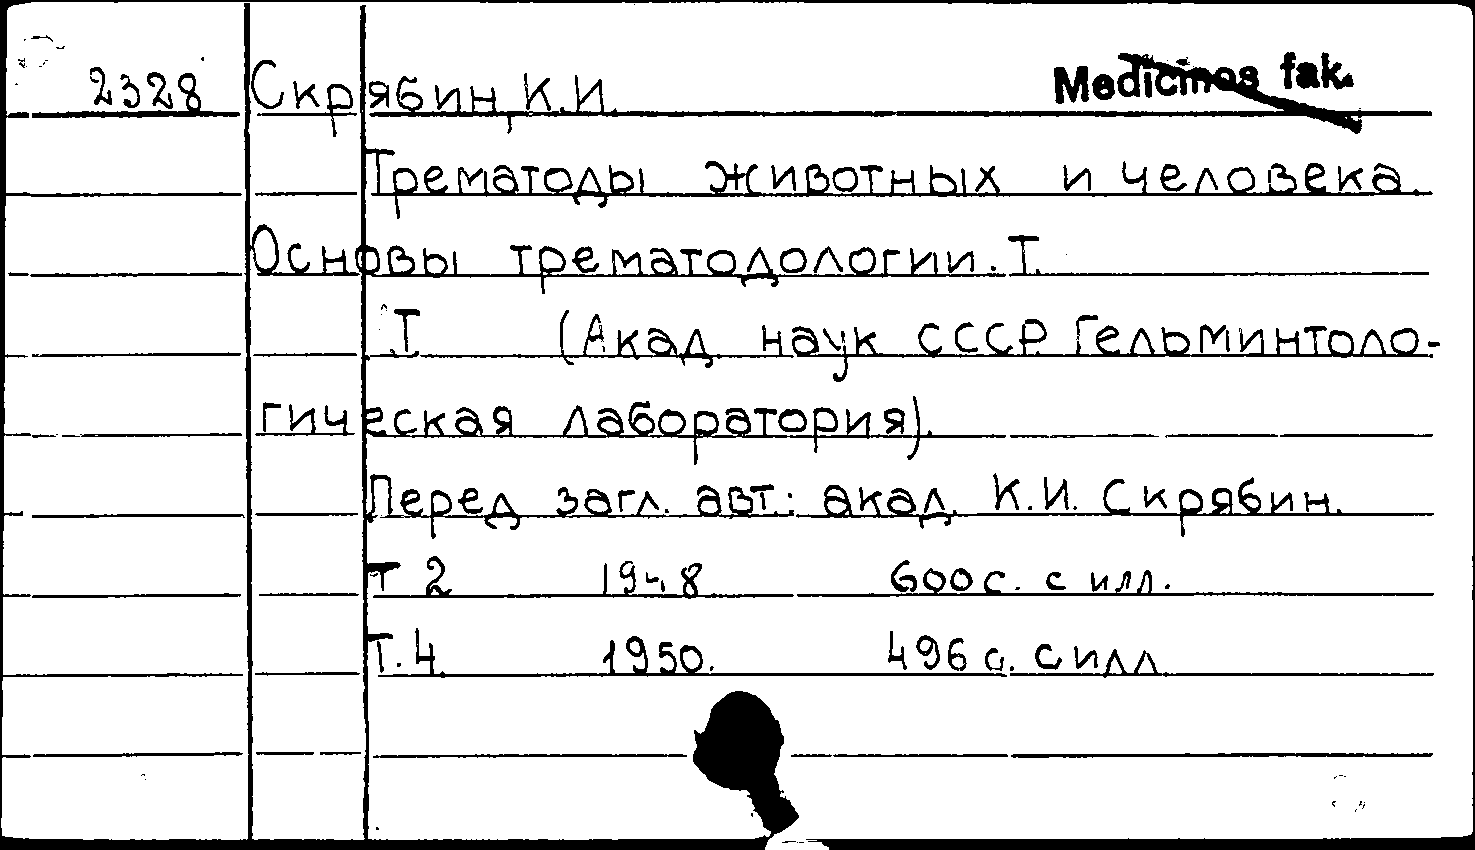 2328 Скрябин, К.И. Medicinos fak.
Трематоды животных и человека.
Основы трематодологии. Т.
Т (Акад. наук СССР. Гельминтоло-
гическая лаборатория).
Перед загл. авт.: акад. К.И. Скрябин.
Т 2 1948 600 с. с илл.
Т. 4. 1950. 496 с. с илл.